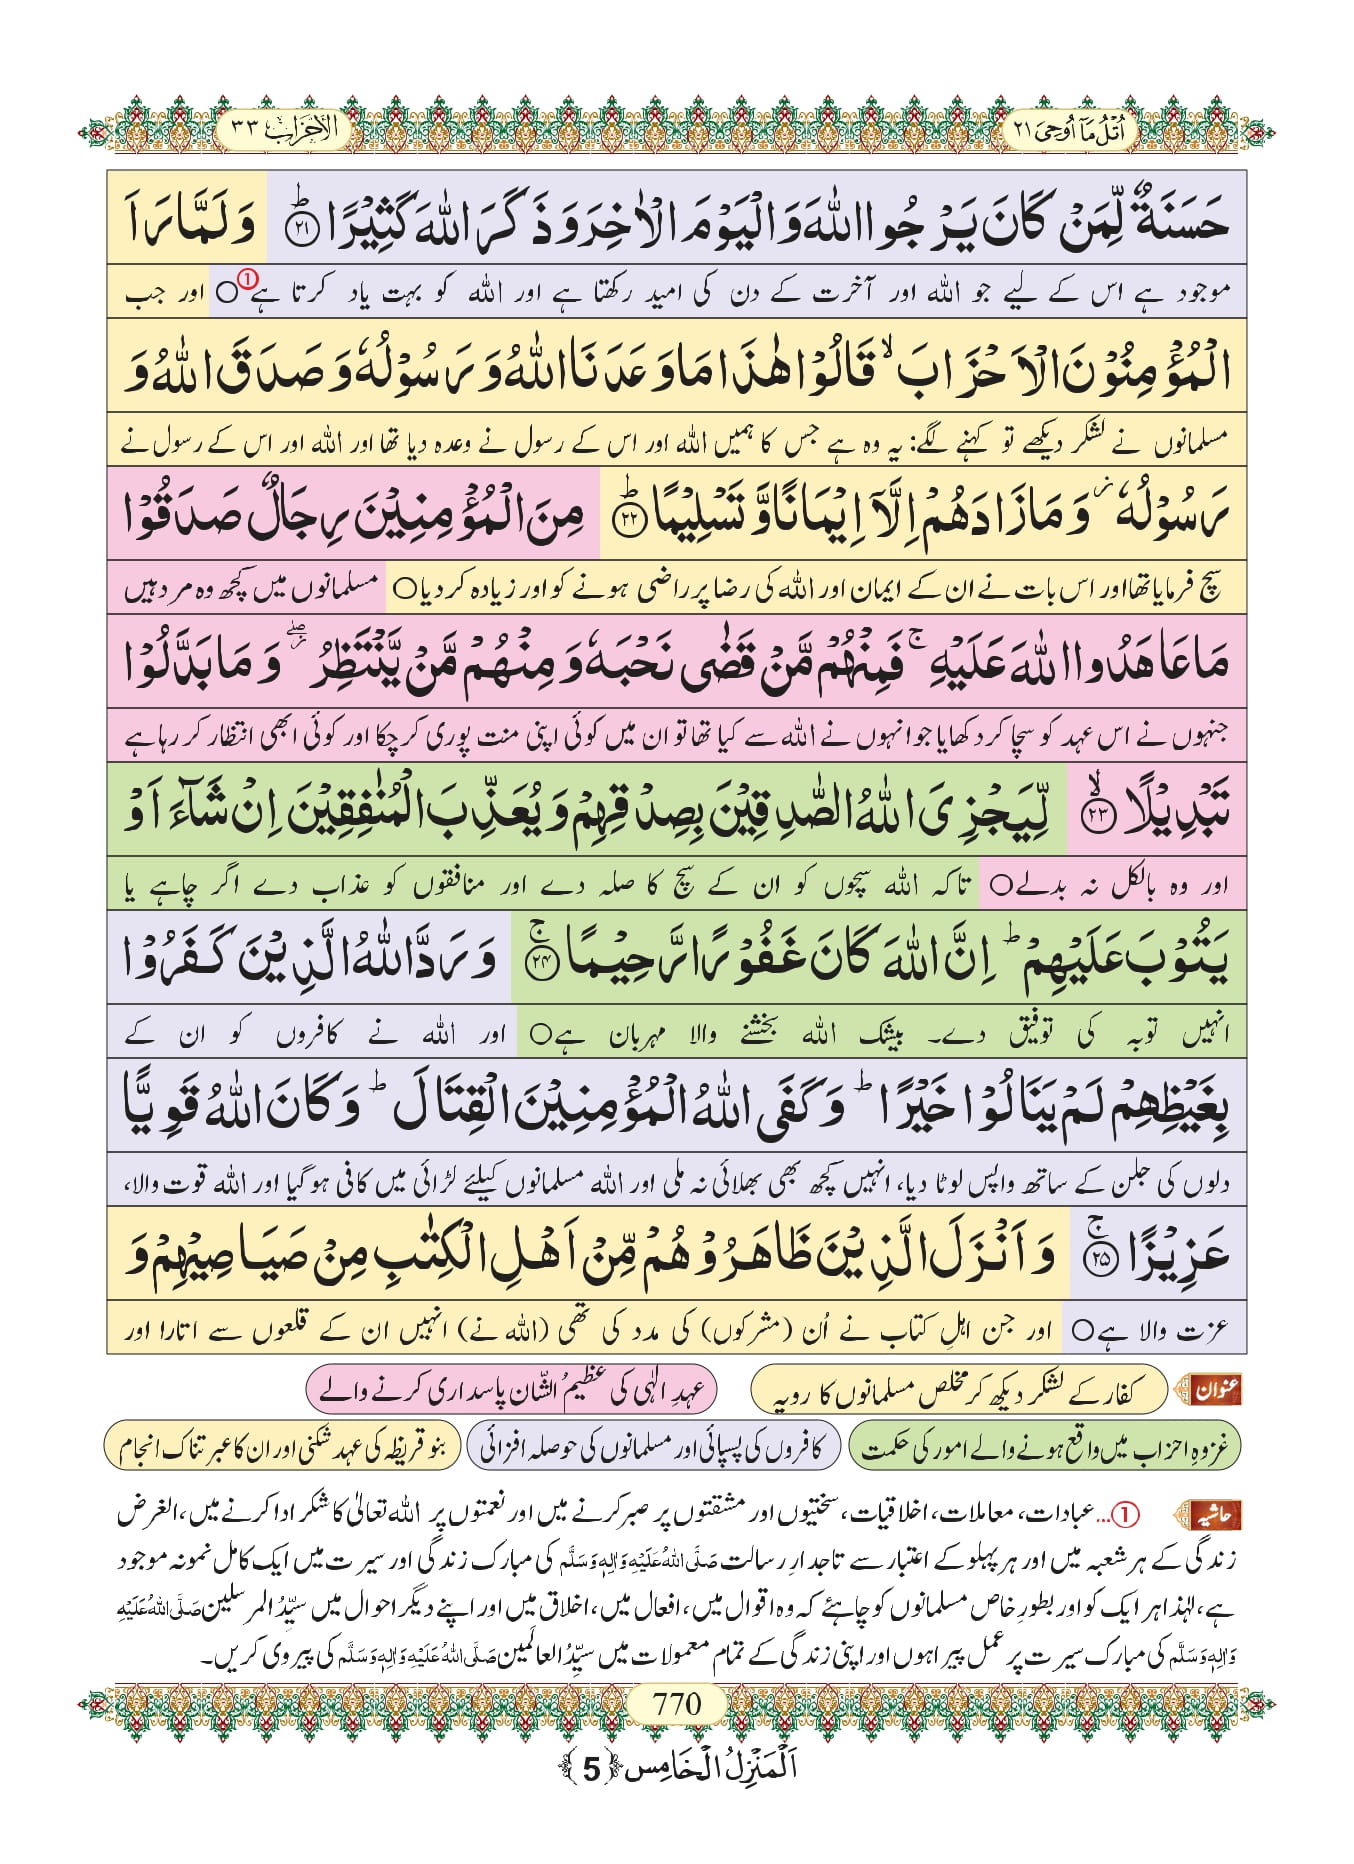 اُتْلُ مَاۤ اُوْحِیَ ۲۱
الاحزاب ۳۳
حَسَنَةٌ لِّمَنْ كَانَ یَرْجُوا اللّٰهَ وَ الْیَوْمَ الْاٰخِرَ وَ ذَكَرَ اللّٰهَ كَثِیْرًاؕ ﴿۲۱﴾ وَ لَمَّا رَاَ
موجود ہے اس کے لیے جو اللہ اور آخرت کے دن کی امید رکھتا ہے اور اللہ کو بہت یاد کرتا ہے 1 ○ اور جب
الْمُؤْمِنُوْنَ الْاَحْزَابَۙ قَالُوْا هٰذَا مَا وَعَدَنَا اللّٰهُ وَ رَسُوْلُهٗ وَ صَدَقَ اللّٰهُ وَ
مسلمانوں نے لشکر دیکھے تو کہنے لگے: یہ وہ ہے جس کا ہمیں اللہ اور اس کے رسول نے وعدہ دیا تھا اور اللہ اور اس کے رسول نے
رَسُوْلُهٗ٘ وَ مَا زَادَهُمْ اِلَّاۤ اِیْمَانًا وَّ تَسْلِیْمًاؕ ﴿۲۲﴾ مِنَ الْمُؤْمِنِیْنَ رِجَالٌ صَدَقُوْا
سچ فرمایا تھا اور اس بات نے ان کے ایمان اور اللہ کی رضا پر راضی ہونے کو اور زیادہ کر دیا ○ مسلمانوں میں کچھ وہ مرد ہیں
مَا عَاهَدُوا اللّٰهَ عَلَیْهِۚ فَمِنْهُمْ مَّنْ قَضٰى نَحْبَهٗ وَ مِنْهُمْ مَّنْ یَّنْتَظِرُ ۖ٘ وَ مَا بَدَّلُوْا
جنہوں نے اس عہد کو سچا کر دکھایا جو انہوں نے اللہ سے کیا تھا تو ان میں کوئی اپنی منت پوری کر چکا اور کوئی ابھی انتظار کر رہا ہے
تَبْدِیْلًاۙ ﴿۲۳﴾ لِّیَجْزِیَ اللّٰهُ الصّٰدِقِیْنَ بِصِدْقِهِمْ وَ یُعَذِّبَ الْمُنٰفِقِیْنَ اِنْ شَآءَ اَوْ
اور وہ بالکل نہ بدلے ○ تاکہ اللہ سچوں کو ان کے سچ کا صلہ دے اور منافقوں کو عذاب دے اگر چاہے یا
یَتُوْبَ عَلَیْهِمْؕ اِنَّ اللّٰهَ كَانَ غَفُوْرًا رَّحِیْمًاۚ ﴿۲۴﴾ وَ رَدَّ اللّٰهُ الَّذِیْنَ كَفَرُوْا
انہیں توبہ کی توفیق دے۔ بیشک اللہ بخشنے والا مہربان ہے ○ اور اللہ نے کافروں کو ان کے
بِغَیْظِهِمْ لَمْ یَنَالُوْا خَیْرًاؕ وَ كَفَى اللّٰهُ الْمُؤْمِنِیْنَ الْقِتَالَؕ وَ كَانَ اللّٰهُ قَوِیًّا
دلوں کی جلن کے ساتھ واپس لوٹا دیا، انہیں کچھ بھی بھلائی نہ ملی اور اللہ مسلمانوں کیلئے لڑائی میں کافی ہو گیا اور اللہ قوت والا،
عَزِیْزًاۚ ﴿۲۵﴾ وَ اَنْزَلَ الَّذِیْنَ ظَاهَرُوْهُمْ مِّنْ اَهْلِ الْكِتٰبِ مِنْ صَیَاصِیْهِمْ وَ
عزت والا ہے ○ اور جن اہلِ کتاب نے اُن (مشرکوں) کی مدد کی تھی (اللہ نے) انہیں ان کے قلعوں سے اتارا اور
عنوان کفار کے لشکر دیکھ کر مخلص مسلمانوں کا رویہ عہدِ الٰہی کی عظیمُ الشّان پاسداری کرنے والے
غزوہِ احزاب میں واقع ہونے والے امور کی حکمت کافروں کی پسپائی اور مسلمانوں کی حوصلہ افزائی بنو قریظہ کی عہد شکنی اور ان کا عبرتناک انجام
حاشیہ 1...عبادات، معاملات، اخلاقیات، سختیوں اور مشقتوں پر صبر کرنے میں اور نعمتوں پر اللہ تعالیٰ کا شکر ادا کرنے میں، الغرض
زندگی کے ہر شعبہ میں اور ہر پہلو کے اعتبار سے تاجدارِ رسالت صَلَّی اللہُ عَلَیْہِ وَاٰلِہٖ وَسَلَّم کی مبارک زندگی اور سیرت میں ایک کامل نمونہ موجود
ہے، لہٰذا ہر ایک کو اور بطورِ خاص مسلمانوں کو چاہئے کہ وہ اقوال میں، افعال میں، اخلاق میں اور اپنے دیگر احوال میں سیّدُ المرسلین صَلَّی اللہُ عَلَیْہِ
وَاٰلِہٖ وَسَلَّم کی مبارک سیرت پر عمل پیرا ہوں اور اپنی زندگی کے تمام معمولات میں سیِّدُ العالَمین صَلَّی اللہُ عَلَیْہِ وَاٰلِہٖ وَسَلَّم کی پیروی کریں۔
770
اَلْمَنْزِلُ الْخَامِس ﴿5﴾